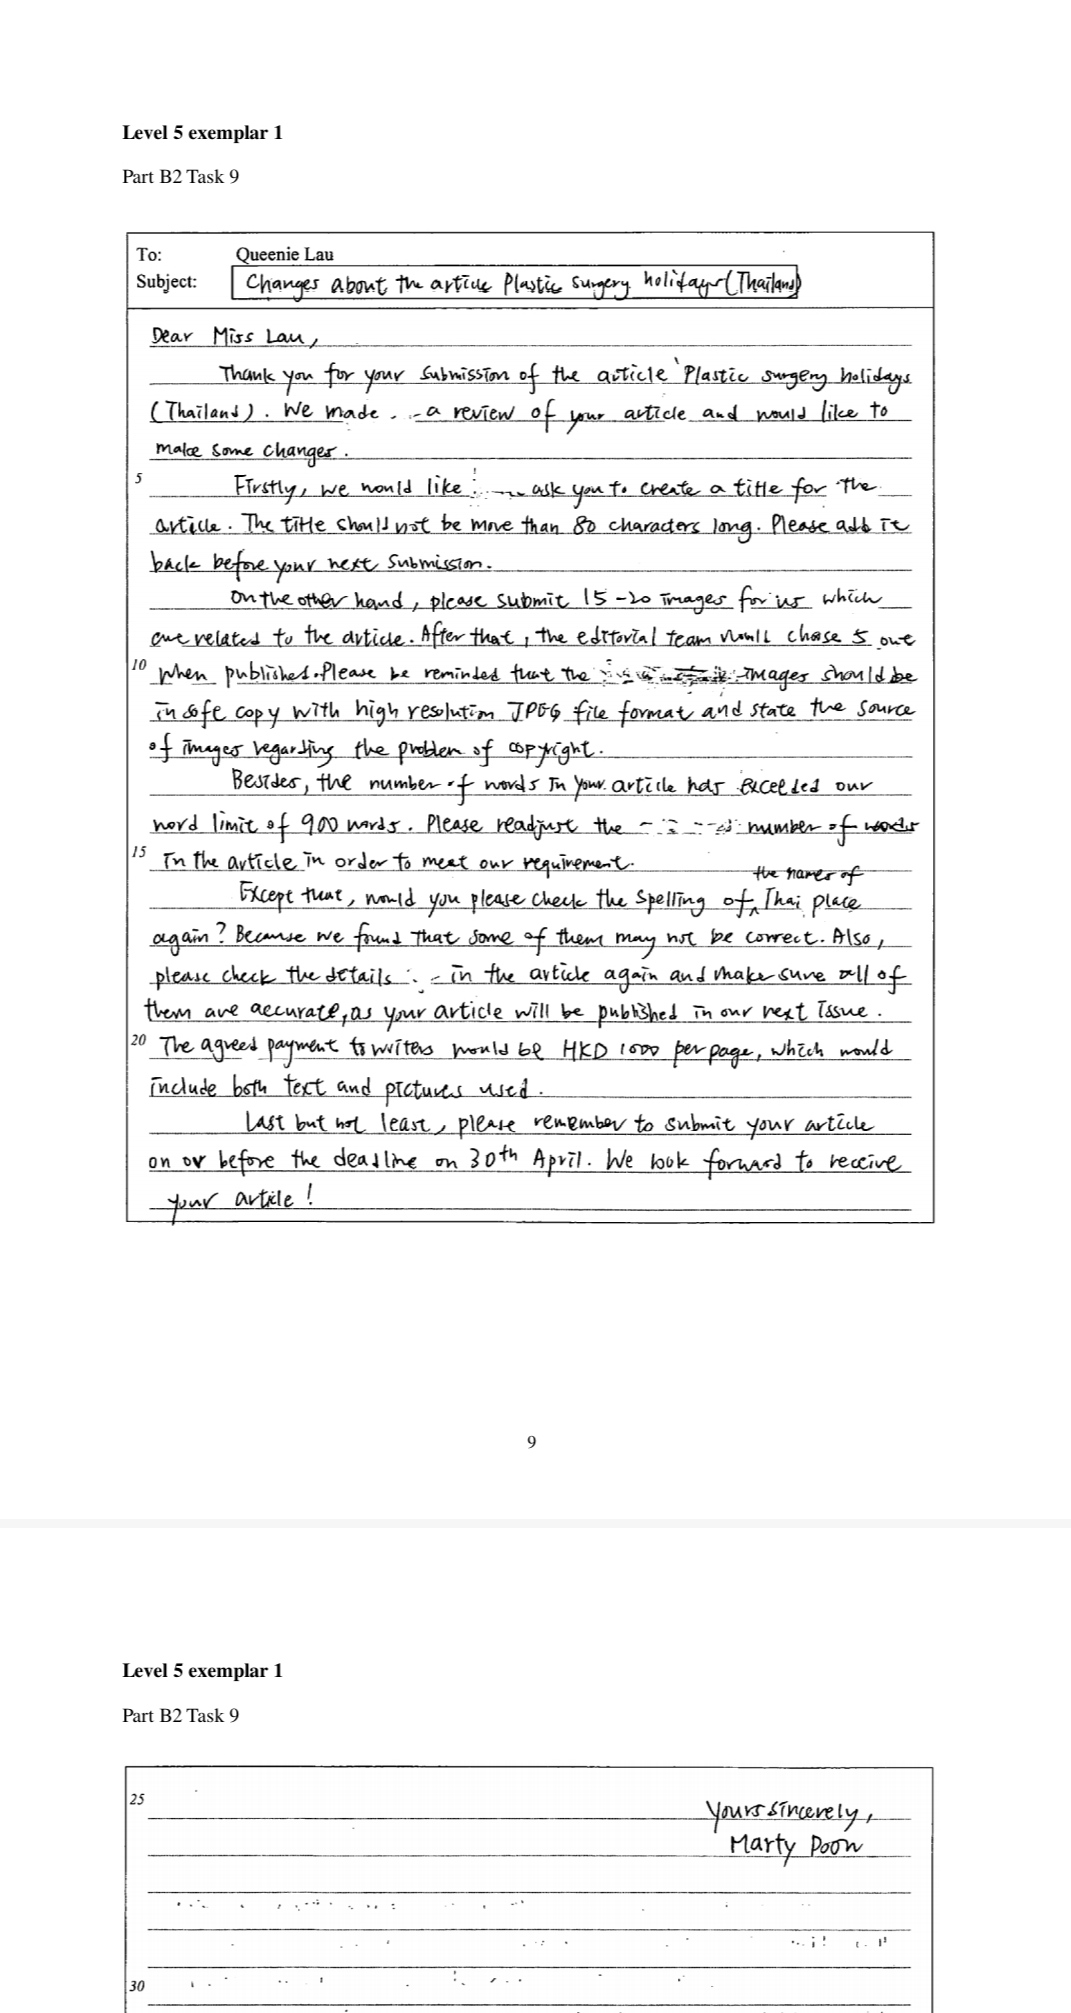 Level 5 exemplar 1
Part B2 Task 9
To: Queenie Lau
Subject: Changes about the article Plastic surgery holidays (Thailand)
Dear Miss Lau,
Thank you for your submission of the article 'Plastic surgery holidays
(Thailand). We made a review of your article and would like to
make some changes.
5 Firstly, we would like ask you to create a title for the
article. The title should not be more than 80 characters long. Please add it
back before your next submission.
On the other hand, please submit 15-20 images for us which
are related to the article. After that, the editorial team would chose 5 one
10 when published. Please be reminded that the images should be
in soft copy with high resolution JPEG file format and state the source
of images regarding the problem of copyright.
Besides, the number of words in your article has exceeded our
word limit of 900 words. Please readjust the number of words
15 in the article in order to meet our requirement.
the names of
Except that, would you please check the spelling of Thai place
again? Because we found that some of them may not be correct. Also,
please check the details in the article again and make sure all of
them are accurate, as your article will be published in our next issue.
20 The agreed payment to writers would be HKD 1000 per page, which would
include both text and pictures used.
Last but not least, please remember to submit your article
on or before the deadline on 30th April. We look forward to receive
your article!
9
Level 5 exemplar 1
Part B2 Task 9
25 Yours sincerely,
Marty Poon
30